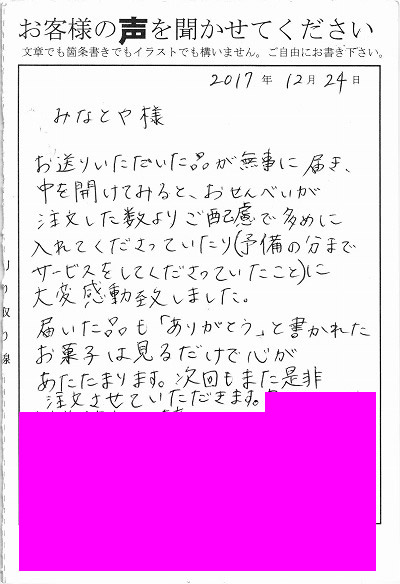 お客様の声を聞かせてください
文章でも箇条書きでもイラストでも構いません。ご自由にお書き下さい。
2017年 12月 24日
みなとや様
お送りいただいた品が無事に届き、
中を開けてみると、おせんべいが
注文した数よりご配慮で多めに
入れてくださっていたり(予備の分まで
サービスをしてくださっていたこと)に
大変感動致しました。
届いた品も「ありがとう」と書かれた
お菓子は見るだけで心が
あたたまります。次回もまた是非
注文させていただきます。